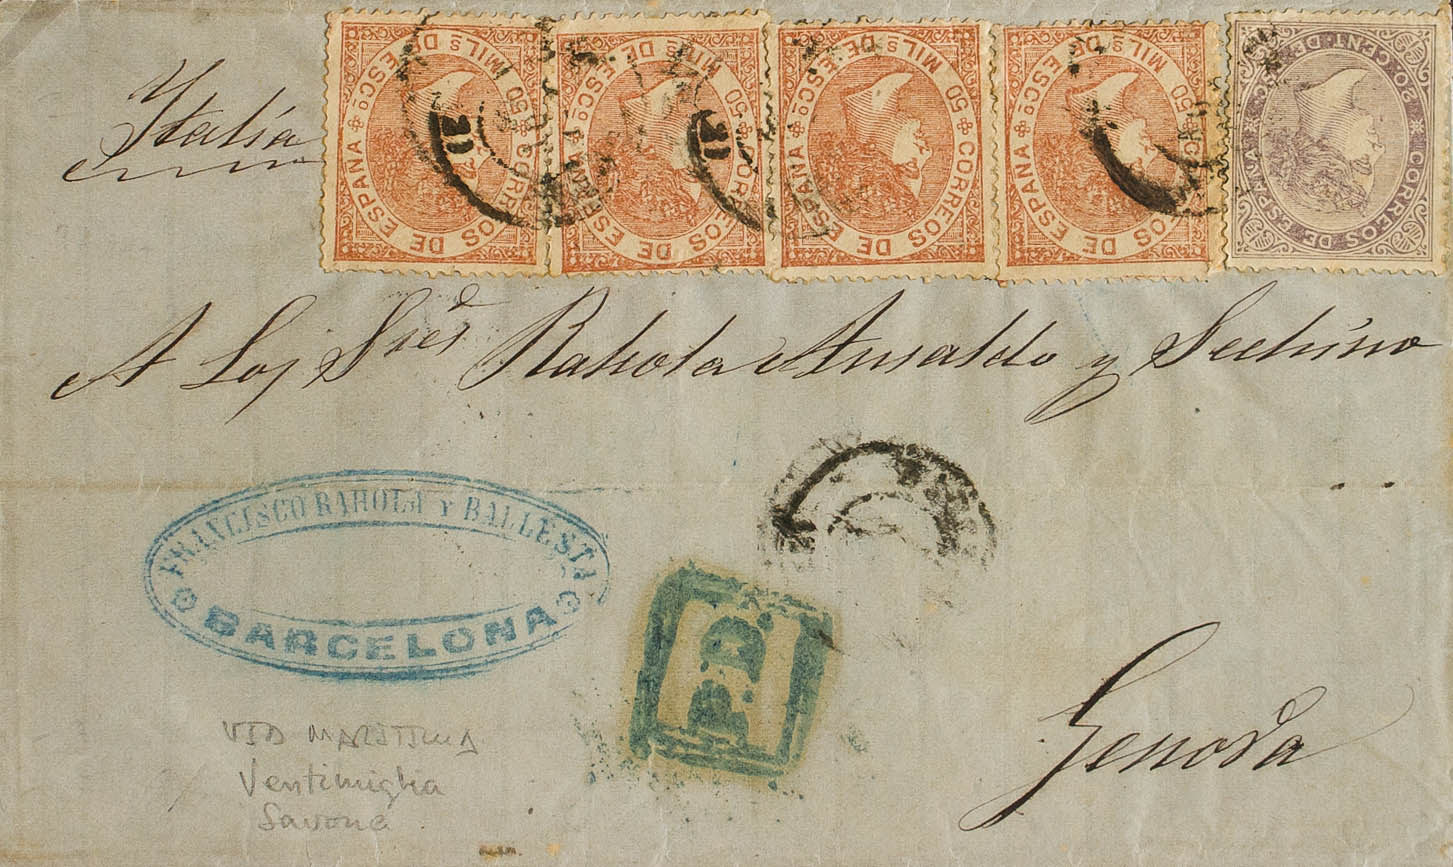 Italia
CORREOS DE ESPAÑA 50 MILs DE ESCo
CORREOS DE ESPAÑA 50 MILs DE ESCo
CORREOS DE ESPAÑA 50 MILs DE ESCo
CORREOS DE ESPAÑA 50 MILs DE ESCo
CORREOS DE ESPAÑA 20 CENT DE
A Los Sres Rahola Ansaldo y Sechino
FRANCISCO RAHOLA Y BALLESTA
BARCELONA
PD
Genova
VIA MARITTIMA
Ventimiglia
Savona